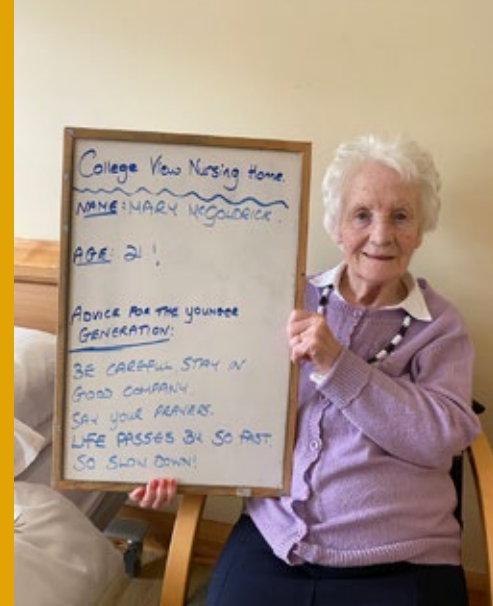 College View Nursing Home.
NAME: MARY McGOLDRICK.
AGE: 21!
ADVICE FOR THE YOUNGER
GENERATION:
BE CAREFUL, STAY IN
GOOD COMPANY.
SAY YOUR PRAYERS.
LIFE PASSES BY SO FAST.
SO SLOW DOWN!